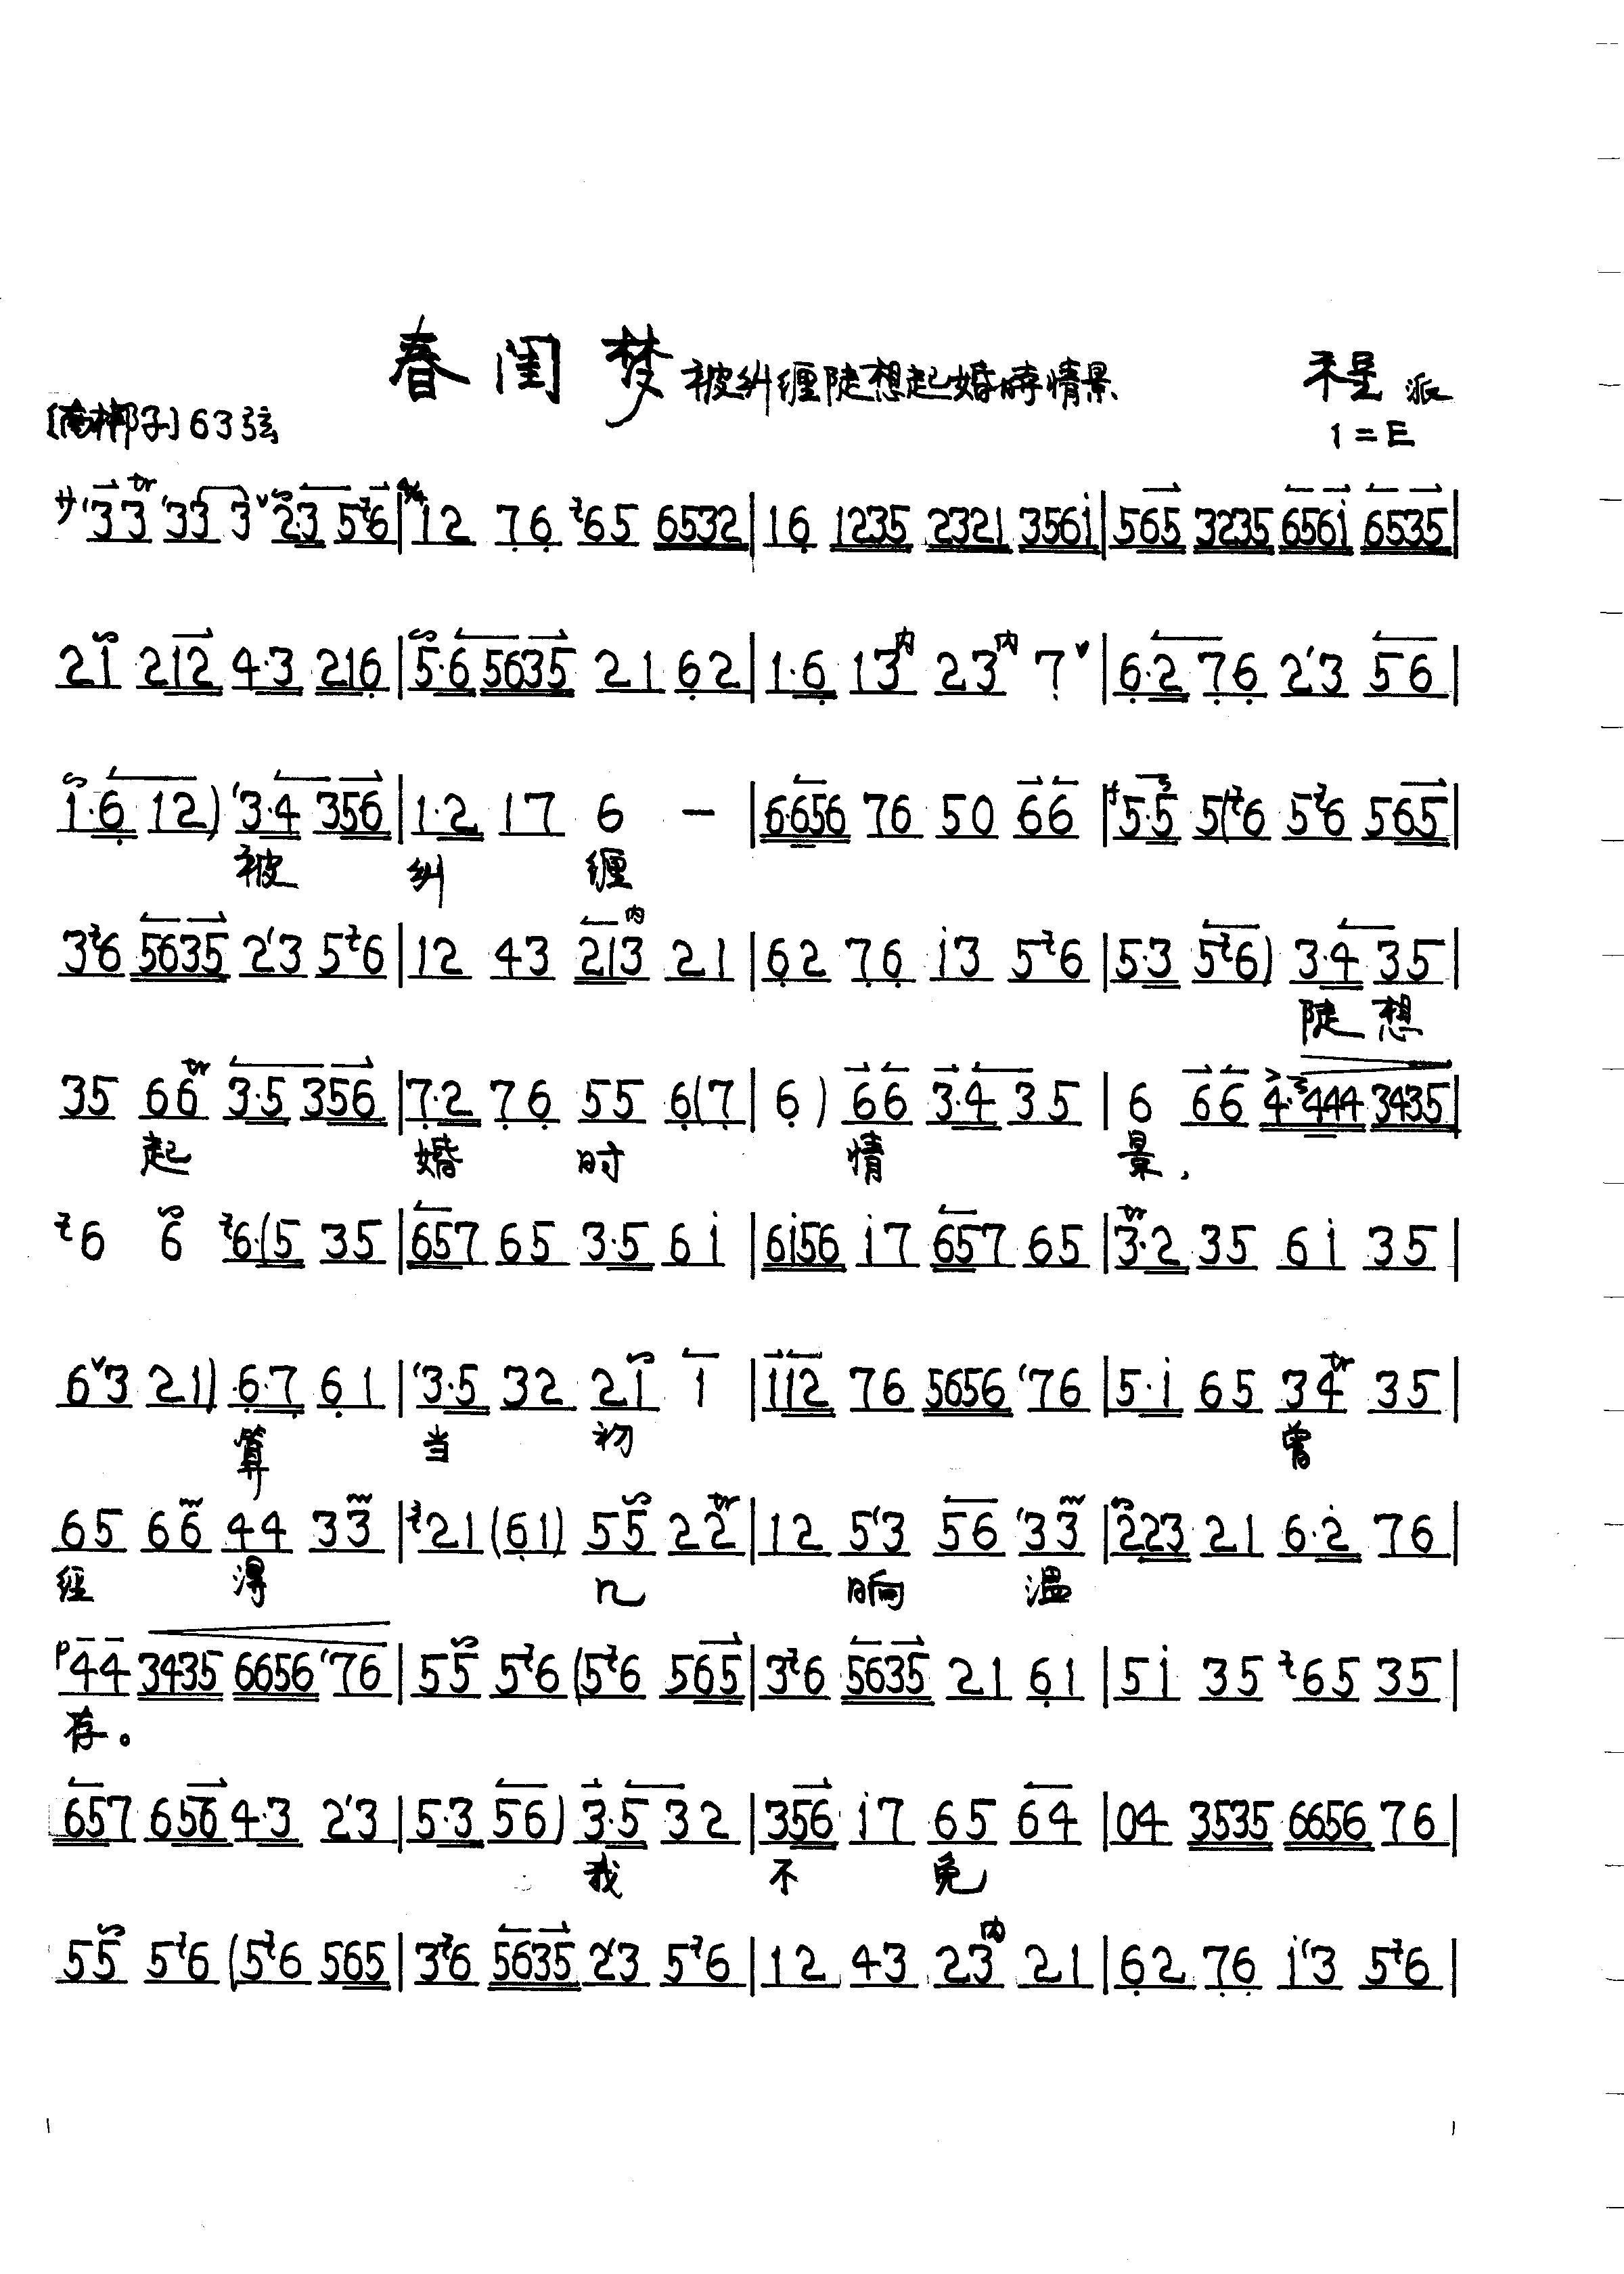 春闺梦 被纠缠陡想起婚时情景 程派
〔南梆子〕63弦 1=E
サ 33 33 3 2·3 56 | 4/4 12 76 65 6532 | 16 1235 2321 3561 | 565 3235 6561 6535 |
21 212 4·3 216 | 5·6 5635 21 62 | 1·6 13内 23内 7 | 6·2 76 23 56 |
1·6 12) 3·4 356 | 1·2 17 6 — | 6·656 76 50 66 | 5·5 5(6 56 565 |
被 纠 缠
36 5635 23 56 | 12 43 213内 21 | 62 76 13 56 | 5·3 56) 3·4 35 |
陡 想
35 66tr 3·5 356 | 7·2 76 55 6(7 | 6) 66 3·4 35 | 6 66 4·444 3435 |
起 婚 时 情 景,
6 6 6·(5 35 | 657 65 3·5 61 | 6156 17 657 65 | 3·2 35 61 35 |
63 21) 6·7 61 | 3·5 32 21 1 | 112 76 5656 76 | 5·1 65 34tr 35 |
算 当 初 曾
65 66 44 33 | 21 (61) 55 22tr | 12 53 56 33 | 223 21 6·2 76 |
经 得 几 晌 温
p44 3435 6656 76 | 55 56 (56 565 | 36 5635 21 61 | 51 35 65 35 |
存。
657 656 4·3 23 | 5·3 56) 3·5 32 | 356 17 65 64 | 04 3535 6656 76 |
我 不 免
55 56 (56 565 | 36 5635 23 56 | 12 43 23内 21 | 62 76 13 56 |